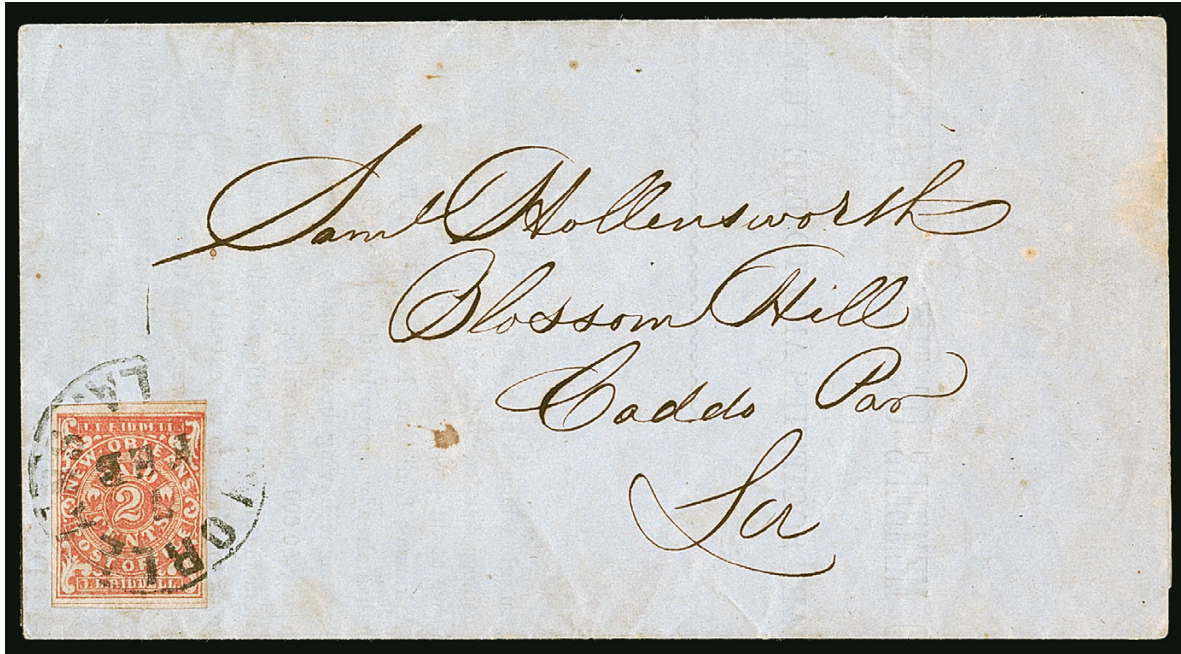 Saml Hollensworth
Blossom Hill
Caddo Par
La
J.L. RIDDELL
NEW ORLEANS
PAID
2
CENTS
POST OFFICE
J.L. RIDDELL.
LA.
FEB